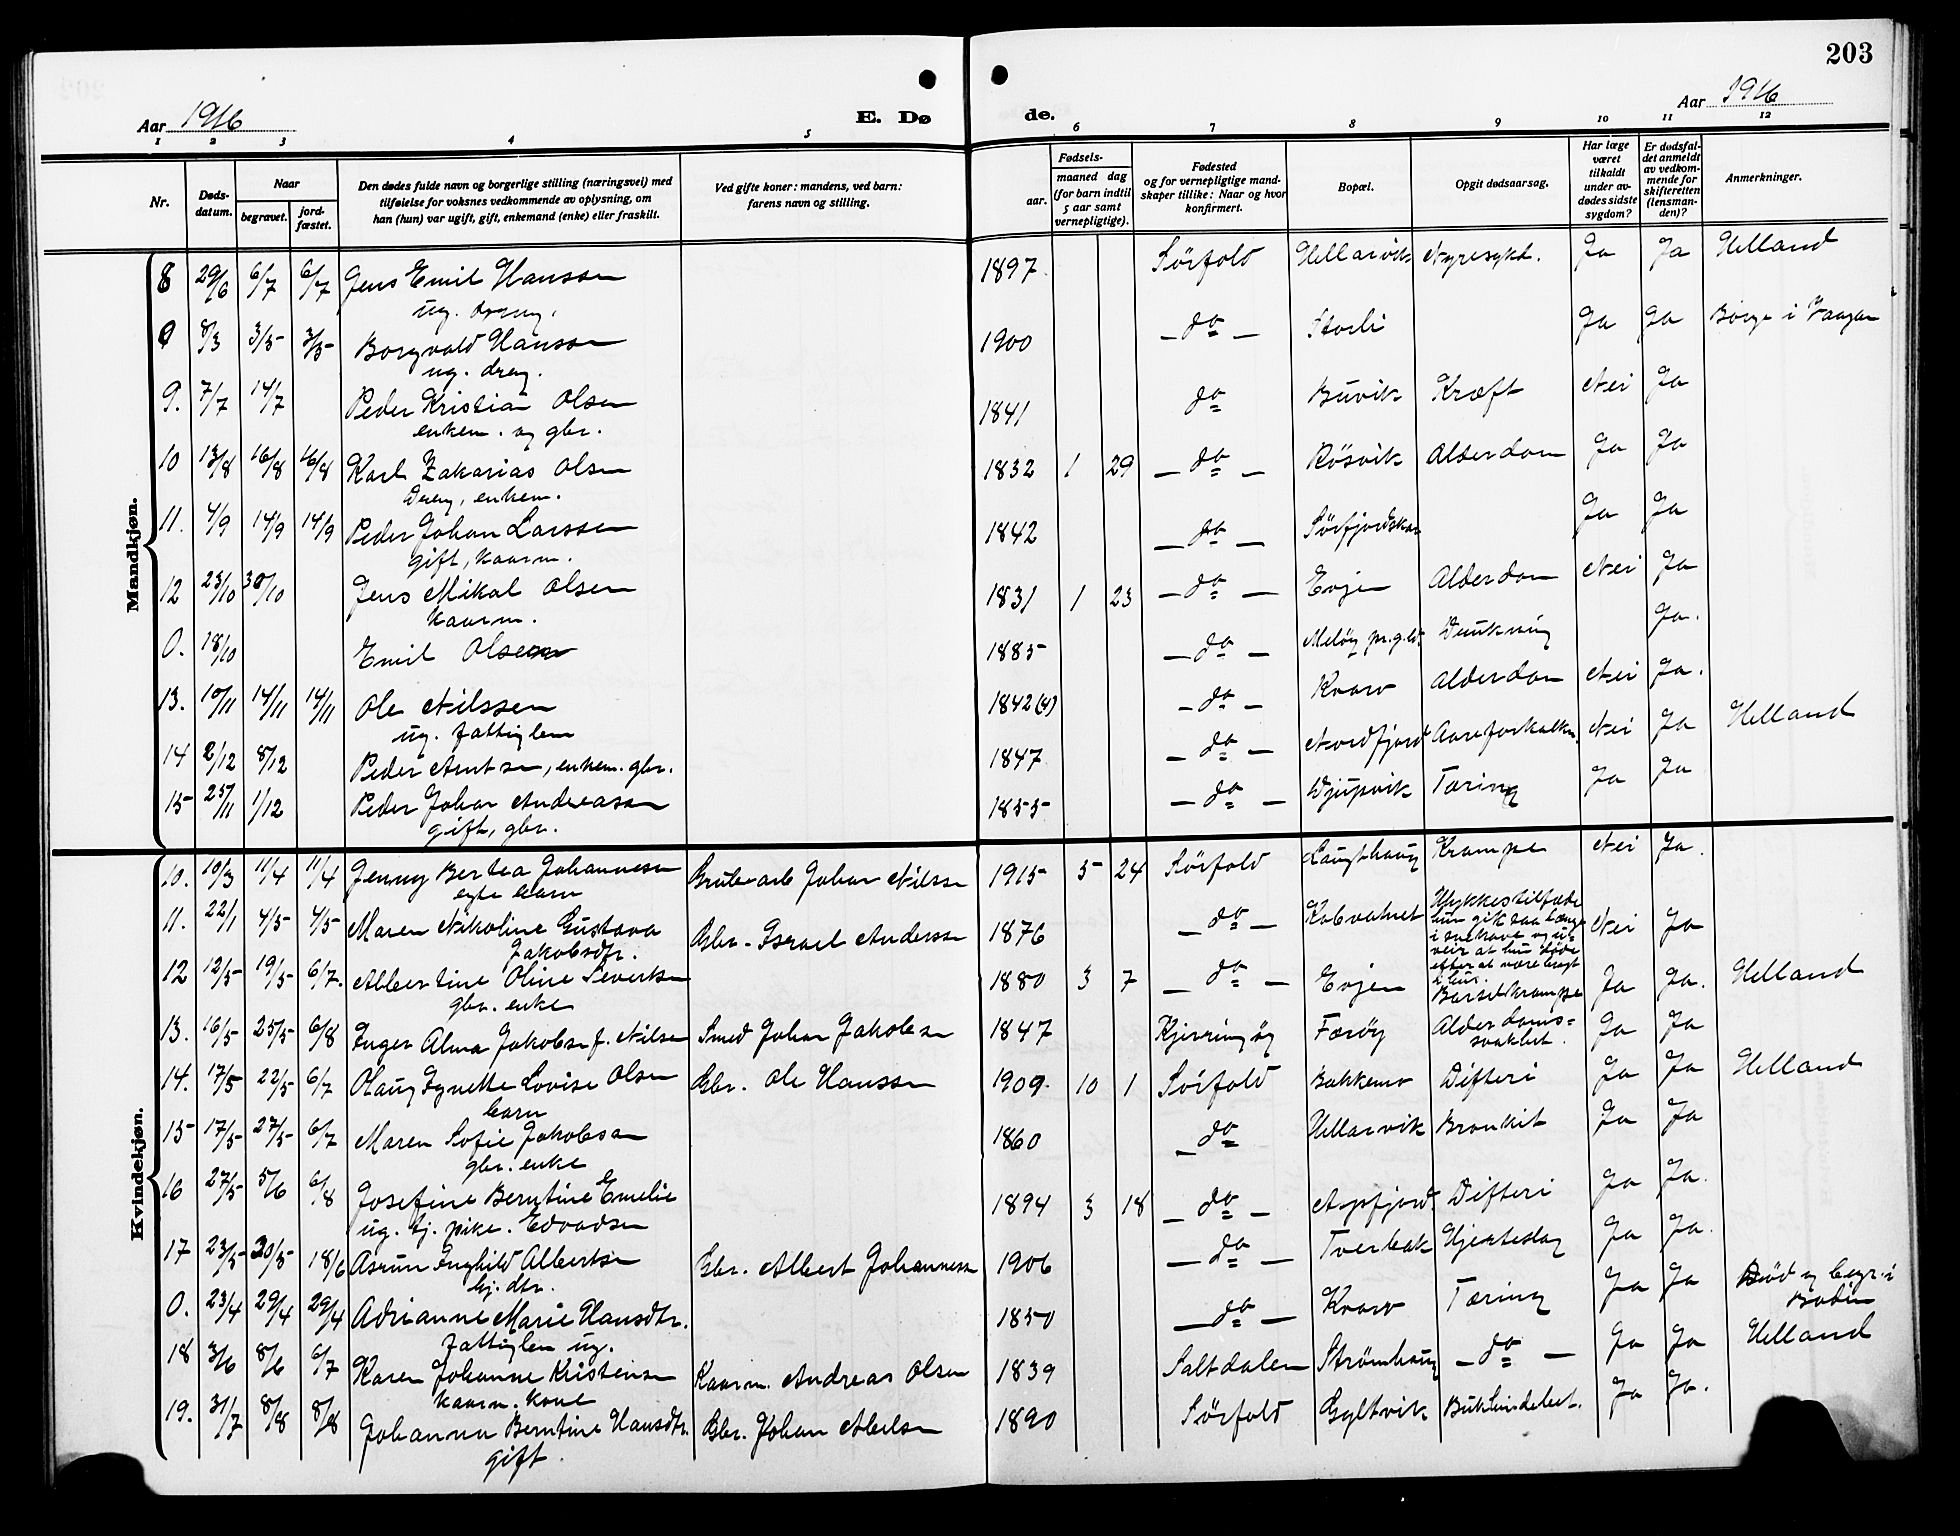 203
Aar 1916 E. Dø de. Aar 1916
1 2 3 4 5 6 7 8 9 10 11 12
Nr. Døds-datum. Naar begravet. jord-fæstet. Den dødes fulde navn og borgerlige stilling (næringsvei) med tilføielse for voksnes vedkommende av oplysning, om han (hun) var ugift, gift, enkemand (enke) eller fraskilt. Ved gifte koner: mandens, ved barn: farens navn og stilling. Fødsels- aar. maaned dag (for barn indtil 5 aar samt vernepligtige). Fødested og for vernepligtige mand-skaper tillike: Naar og hvor konfirmert. Bopæl. Opgit dødsaarsag. Har læge været tilkaldt under av-dødes sidste sygdom? Er dødsfal-det anmeldt av vedkom-mende for skifteretten (lensman-den)? Anmerkninger.
Mandkjøn.
8 29/6 6/7 6/7 Jens Emil Hanssen 1897 Sörfold Hellarvik Nyresykd. Ja Ja Helland
ug. dreng.
9 8/3 3/5 3/5 Borgvald Hanssen 1900 - do - Storli Ja Ja Borge i Vaagan
ug. dreng.
9. 7/7 14/7 Peder Kristian Olsen 1841 do Buvik Kræft Nei Ja
enkem. og gbr.
10 13/8 16/8 16/8 Karl Zakarias Olsen 1832 1 29 - do - Rösvik Alderdom Ja Ja
enkem.
11. 4/9 14/9 14/9 Peder Johan Larssen 1842 - do - Ja Ja
gift, kaarm.
12 23/10 30/10 Jens Mikal Olsen 1831 1 23 - do - Evjen Alderdom Nei Ja
kaarm.
0. 18/10 Emil Olsen 1885 - do - Melöy pr.g.ld. Drukning Ja.
13. 10/11 14/11 14/11 Ole Nilssen 1842 (4) - do - Kvarv Alderdom Nei Ja.
ug. fattiglem
14 2/12 8/12 Peder Arntsen, enkem. gbr. 1847 - do - Nordfjord Aareforkalkn. Nei Ja Helland
15 25/11 1/12 Peder Johan Andreassen 1855 - do - Djupvik Tæring Ja Ja
gift, gbr.
Kvindekjøn.
10. 10/3 11/4 11/4 Jenny Bertea Johannesen Brukarb Johan Nilssen 1915 5 24 Sörfold Laugthaug Krampe Nei Ja.
egte barn
11. 22/1 4/5 4/5 Maren Nikoline Gustava Gbr. Israel Anderssen 1876 - do - Kobvatnet Ulykkestilfælde Nei Ja
Jakobsdtr. hun gik saa længe
i snekave og u-
veir at hun döde
efter at være bragt
i hus.
12 12/5 19/5 6/7. Albertine Oline Sivertsen 1880 3 7 - do - Evjen Barselkrampe Ja Ja. Helland
gbr. enke
13. 16/5 25/5 6/8 Inger Alma Jakobsen f. Nilsen Smed Johan Jakobsen 1847 Kjerringöy Færöy Alderdoms= Ja Ja
svakhet.
14. 17/5 22/5 6/7 Olaug Synette Lovise Olsen Gbr. Ole Hanssen 1909. 10 1 Sörfold Bakkemo Difteri Ja Ja Helland
barn
15 17/5 27/5 6/7 Maren Sofie Jakobsen 1860 - do Hellarvik Bronkit Ja Ja
gbr. enke
16 27/5 5/6 6/8 Josefine Berntine Emelie 1894 3 18 - do - Aspfjord. Difteri Ja Ja.
ug. tj. pike. Edvadsen
17 23/5 30/5 18/6 Asrun Inghild Albertsen Gbr. Albert Johannessen 1906 - do - Tverbak Hjerteslag Ja Ja.
hj. dtr.
0. 23/4 29/4 29/4 Adrianne Marie Hansdtr. 1850 - do - Kvarv Tæring Ja Ja Död og begr. i
Fattiglem ug. Bodin
18 3/6 8/6 6/7 Karen Johanne Kristensen Kaarm. Andreas Olsen 1839 Saltdalen Strømhaug - do - Ja Ja Helland
kaarm. kone
19. 31/7 8/8 8/8 Johanna Berntine Hansdtr. Gbr. Johan Abelsen 1890 Sörfold Gyltvik Ja Ja.
gift.